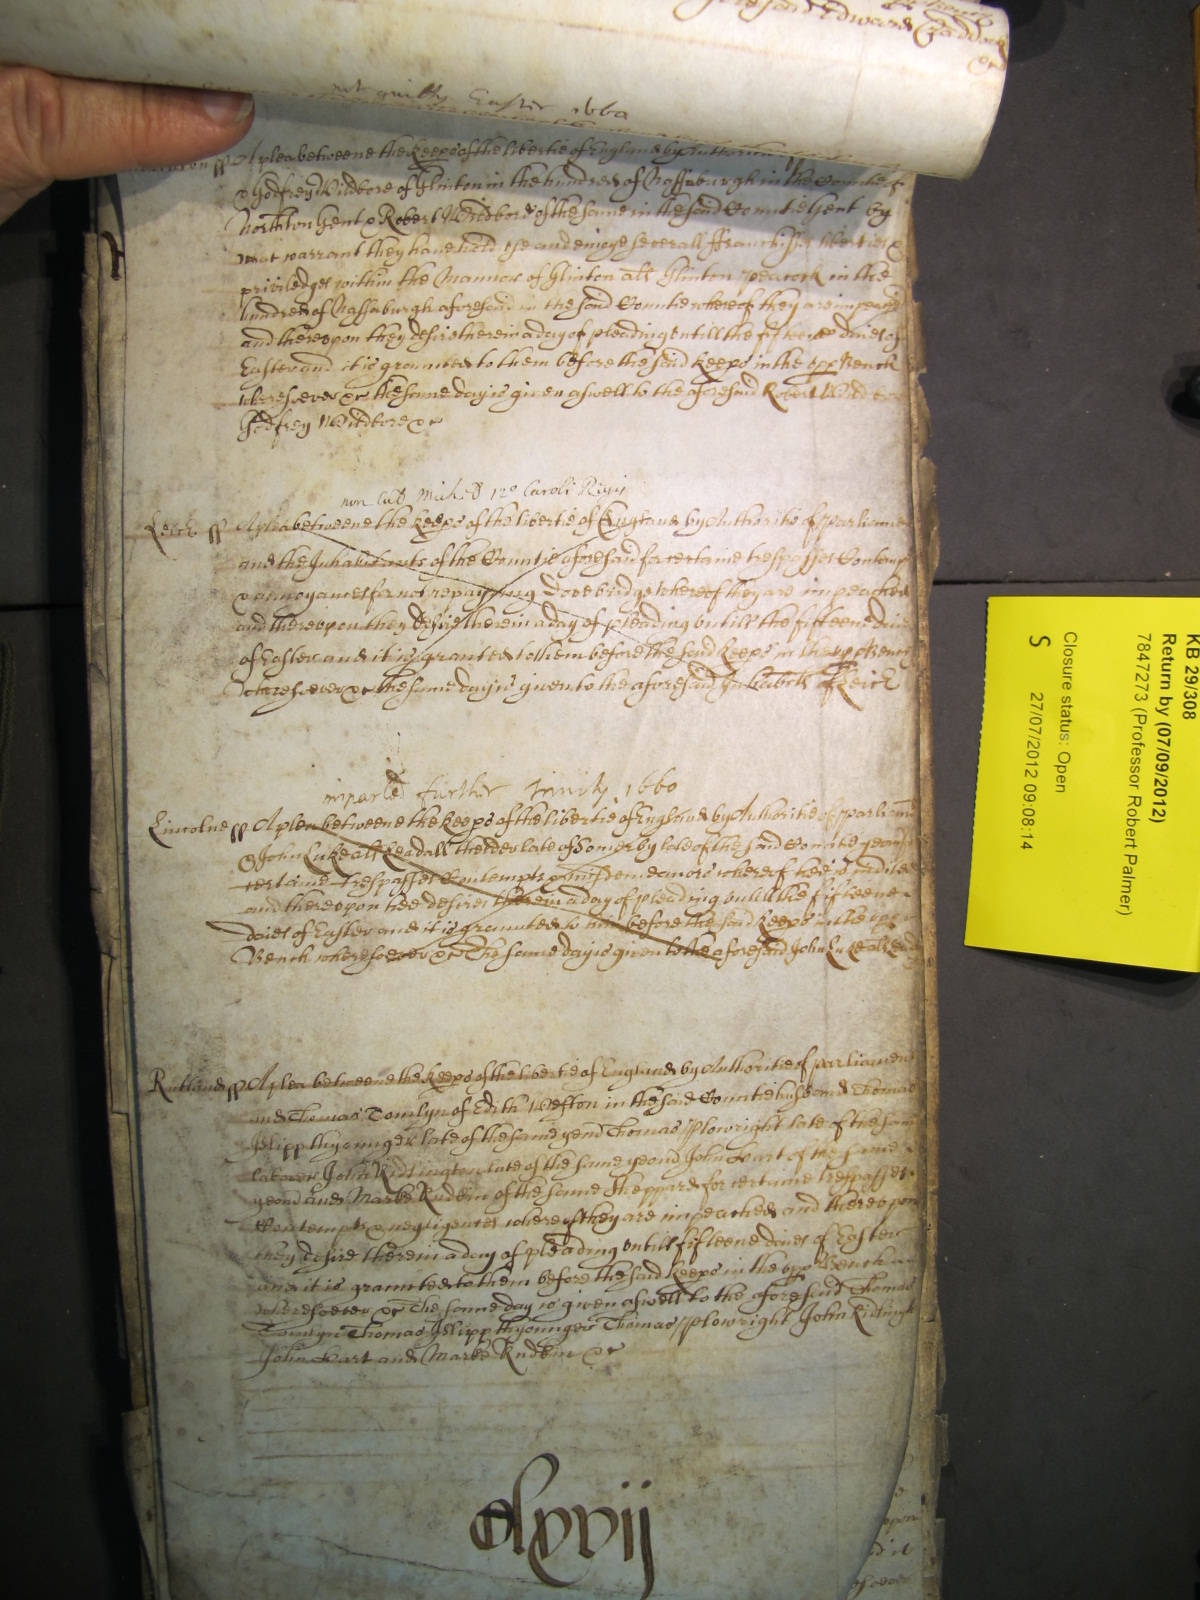 aforesaid Edward Craddock
&c
not guilty Easter 1660
Northton ss A plea betweene the keeps of the libertie of England by Authoritie
& Godfrey Wildbore of Glinton in the hundred of Nassaburgh in the Countie of
Northton Gent & Robert Wildbore of the same in the said Countie Gent by
what warrant they have hold use and enioye severall ffranchises liberties &
priviledges within the Mannor of Glinton als Glinton peacock in the
hundred of Nassaburgh aforesaid in the said Countie whereof they are impeach
and thereupon they desire therein a day of pleading untill the fifteene daies of
Easter and it is graunted to them before the said keeps in the upp Bench
wheresoever &c the same day is given aswell to the aforesaid Robert Wildbore
Godfrey Wildbore &c
non cul Mich 12o Caroli Regis
Leic ss A plea betweene the keeps of the libertie of England by Authoritie of parliamt
and the Inhabitants of the Countie aforesaid for certaine trespasses Contempt
& annoyances for not repayring Dove bridge whereof they are impeached
and thereupon they desire therein a day of pleading untill the fifteene daies
of Easter and it is granted to them before the said keeps in the upp Bench
wheresoever &c the same day is given to the aforesaid Inhabitts of Leic
imparled further Trinity 1660
Lincolne ss A plea betweene the keeps of the libertie of England by Authoritie of parliamt
& John Luke als Kendall the elder late of Somerby late of the said Countie yeom
certaine trespasses Contempts & misdemeanors whereof hee is indicted
and thereupon hee desires therein a day of pleading untill the fifteene
daies of Easter and it is graunted to him before the said keeps in the upp
Bench wheresoever &c The same day is given to the aforesaid John Luke als
Rutland ss A plea betweene the keeps of the libertie of England by Authoritie of parliament
and Thomas Tomlyn of Edith Weston in the said Countie husband Thomas
Jelipp the younger late of the same yeom Thomas Plowright late of the same
laborer John Ridlington late of the same yeom John Hart of the same
yeom and Marke Rudkin of the same sheppard for certaine trespasses
Contempts & negligences whereof they are impeached and thereupon
they desire therein a day of pleading untill fifteene daies of Easter
and it is graunted to them before the said keeps in the upp Bench
wheresoever &c The same day is given aswell to the aforesaid Thomas
Tomlyn Thomas Jelipp the younger Thomas Plowright John Ridling
John Hart and Marke Rudkin &c
clxvij
KB 29/308
Return by (07/09/2012)
7847273 (Professor Robert Palmer)
Closure status: Open
S 27/07/2012 09:08:14